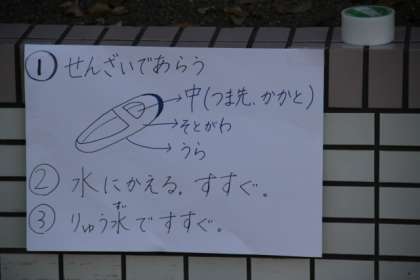 ① せんざいであらう
中(つま先、かかと)
そとがわ
うら
② 水にかえる。すすぐ。
③ りゅう水ですすぐ。
すい